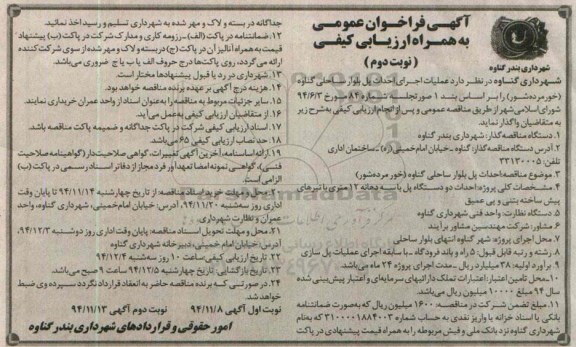 آگهی فراخوان عمومی
به همراه ارزیابی کیفی
(نوبت دوم)
شهرداری بندر گناوه
شهرداری گناوه در نظر دارد عملیات اجرای احداث پل بلوار ساحلی گناوه
(خور مرده‌شور) را بر اساس بند ۱ صورتجلسه شماره ۸۴ مورخ ۹۴/۶/۳
شورای اسلامی شهر از طریق مناقصه عمومی و پس از انجام ارزیابی کیفی به شرح زیر
به متقاضیان واگذار نماید.
۱. دستگاه مناقصه گذار: شهرداری بندر گناوه
۲. آدرس دستگاه مناقصه گذار: گناوه ـ خیابان امام خمینی(ره) ـ ساختمان اداری
تلفن: ۳۳۱۳۰۰۰۵
۳. موضوع مناقصه: احداث پل بلوار ساحلی گناوه (خور مرده‌شور)
۴. مشخصات کلی پروژه: احداث دو دستگاه پل با سه دهانه ۱۲ متری با تیرهای
پیش ساخته بتنی و پی عمیق
۵. دستگاه نظارت: واحد فنی شهرداری گناوه
۶. مشاور: شرکت مهندسین مشاور برآیند
۷. محل اجرای پروژه: شهر گناوه انتهای بلوار ساحلی
۸. رشته و رتبه قابل قبول: ۵ راه و باند فرودگاه ـ با سابقه اجرای عملیات پل سازی
۹. برآورد اولیه: ۳۸ میلیارد ریال ـ مدت اجرای پروژه ۲۴ ماه می‌باشد.
۱۰. محل تامین اعتبار: اعتبارات تملک دارائیهای سرمایه‌ای و اعتبار پیش بینی شده
سال ۹۴ مبلغ ۱۰۰۰۰ میلیون ریال می‌باشد.
۱۱. مبلغ تضمین شرکت در مناقصه: ۱۶۰۰ میلیون ریال که به صورت ضمانتنامه
بانکی یا اسناد خزانه یا واریز نقدی به حساب شماره ۳۱۰۰۰۰۱۸۸۴۰۰۳ که به نام
شهرداری گناوه نزد بانک ملی و فیش مربوطه را به همراه قیمت پیشنهادی در پاکت
جداگانه در بسته و لاک و مهر شده به شهرداری تسلیم و رسید اخذ نمائید.
۱۲. ضمانتنامه در پاکت (الف)ـ رزومه کاری و مدارک شرکت در پاکت (ب) پیشنهاد
قیمت به همراه آنالیز آن در پاکت (ج) در بسته و لاک و مهر شده از سوی شرکت کننده
ارائه می‌گردد، روی پاکت‌ها درج حروف الف یا ب یا ج ضروری می‌باشد.
۱۳. شهرداری در رد یا قبول پیشنهادها مختار است.
۱۴. هزینه درج آگهی بر عهده برنده مناقصه خواهد بود.
۱۵. سایر جزئیات مربوط به مناقصه را به عنوان اسناد از واحد عمران خریداری نمایند.
۱۶. از متقاضیان ارزیابی کیفی به عمل می‌آید.
۱۷. اسناد ارزیابی کیفی شرکت در پاکت جداگانه و ضمیمه پاکت مناقصه باشد.
۱۸. حد نصاب ارزیابی کیفی ۶۵ می‌باشد.
۱۹. ارائه اساسنامه، آخرین آگهی تغییرات، گواهی صلاحیت‌دار (گواهینامه صلاحیت
فنی)، گواهی نمونه امضا تعهدآور فرد مجاز از دفاتر اسناد رسمی در پاکت (ب)
الزامی است.
۲۰. محل و مهلت خرید اسناد مناقصه: از تاریخ چهارشنبه ۹۴/۱۱/۱۴ تا پایان وقت
اداری روز سه‌شنبه ۹۴/۱۱/۲۰، آدرس: خیابان امام خمینی، شهرداری گناوه، واحد
عمران و نظارت شهرداری
۲۱. محل و مهلت تحویل اسناد مناقصه: پایان وقت اداری روز دوشنبه ۹۴/۱۲/۳،
آدرس: خیابان امام خمینی، دبیرخانه شهرداری گناوه
۲۲. تاریخ ارزیابی کیفی ساعت ۱۰ روز سه‌شنبه ۹۴/۱۲/۴
۲۳. تاریخ بازگشائی: تاریخ چهارشنبه ۹۴/۱۲/۵ ساعت ۹ صبح می‌باشد.
۲۴. در صورتی که برنده مناقصه حاضر به انعقاد قرارداد نگردد سپرده وی ضبط
خواهد شد.
نوبت اول آگهی ۹۴/۱۱/۸ نوبت دوم آگهی ۹۴/۱۱/۱۳
امور حقوقی و قراردادهای شهرداری بندر گناوه